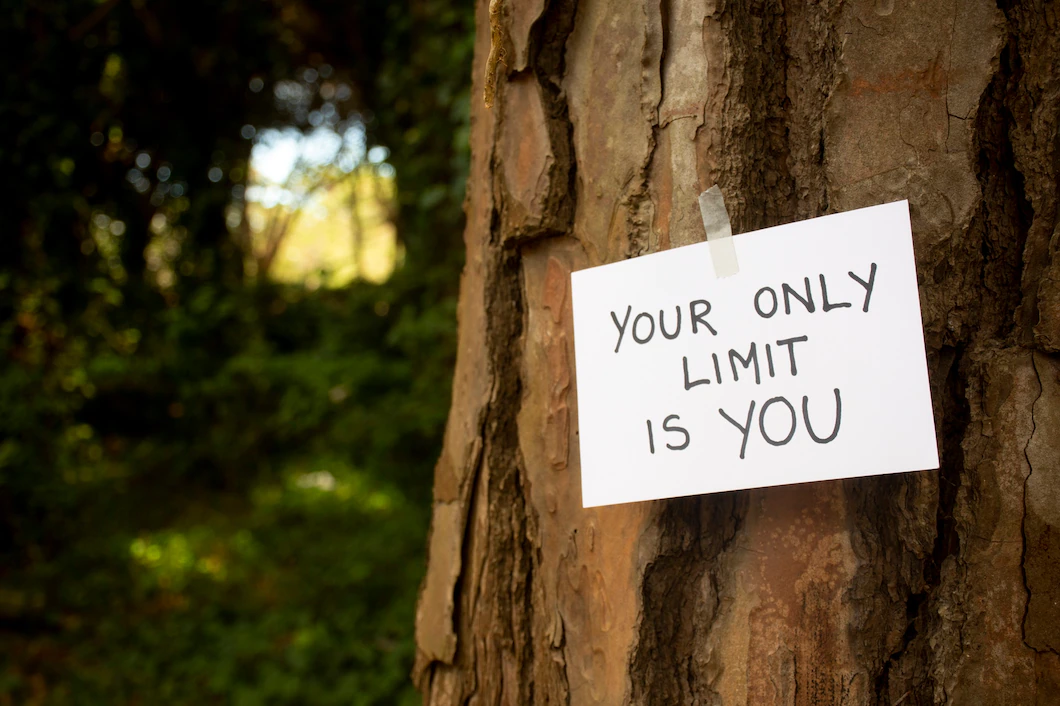 YOUR ONLY
LIMIT
IS YOU